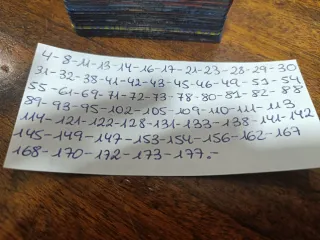 4-8-11-13-14-16-17-21-23-28-29-30
31-32-38-41-42-43-45-46-49-51-54
55-61-69-71-72-73-78-80-81-82-88
89-93-95-102-105-109-110-111-113
114-121-122-128-131-133-138-141-142
145-149-147-153-154-156-162-167
168-170-172-173-177.-